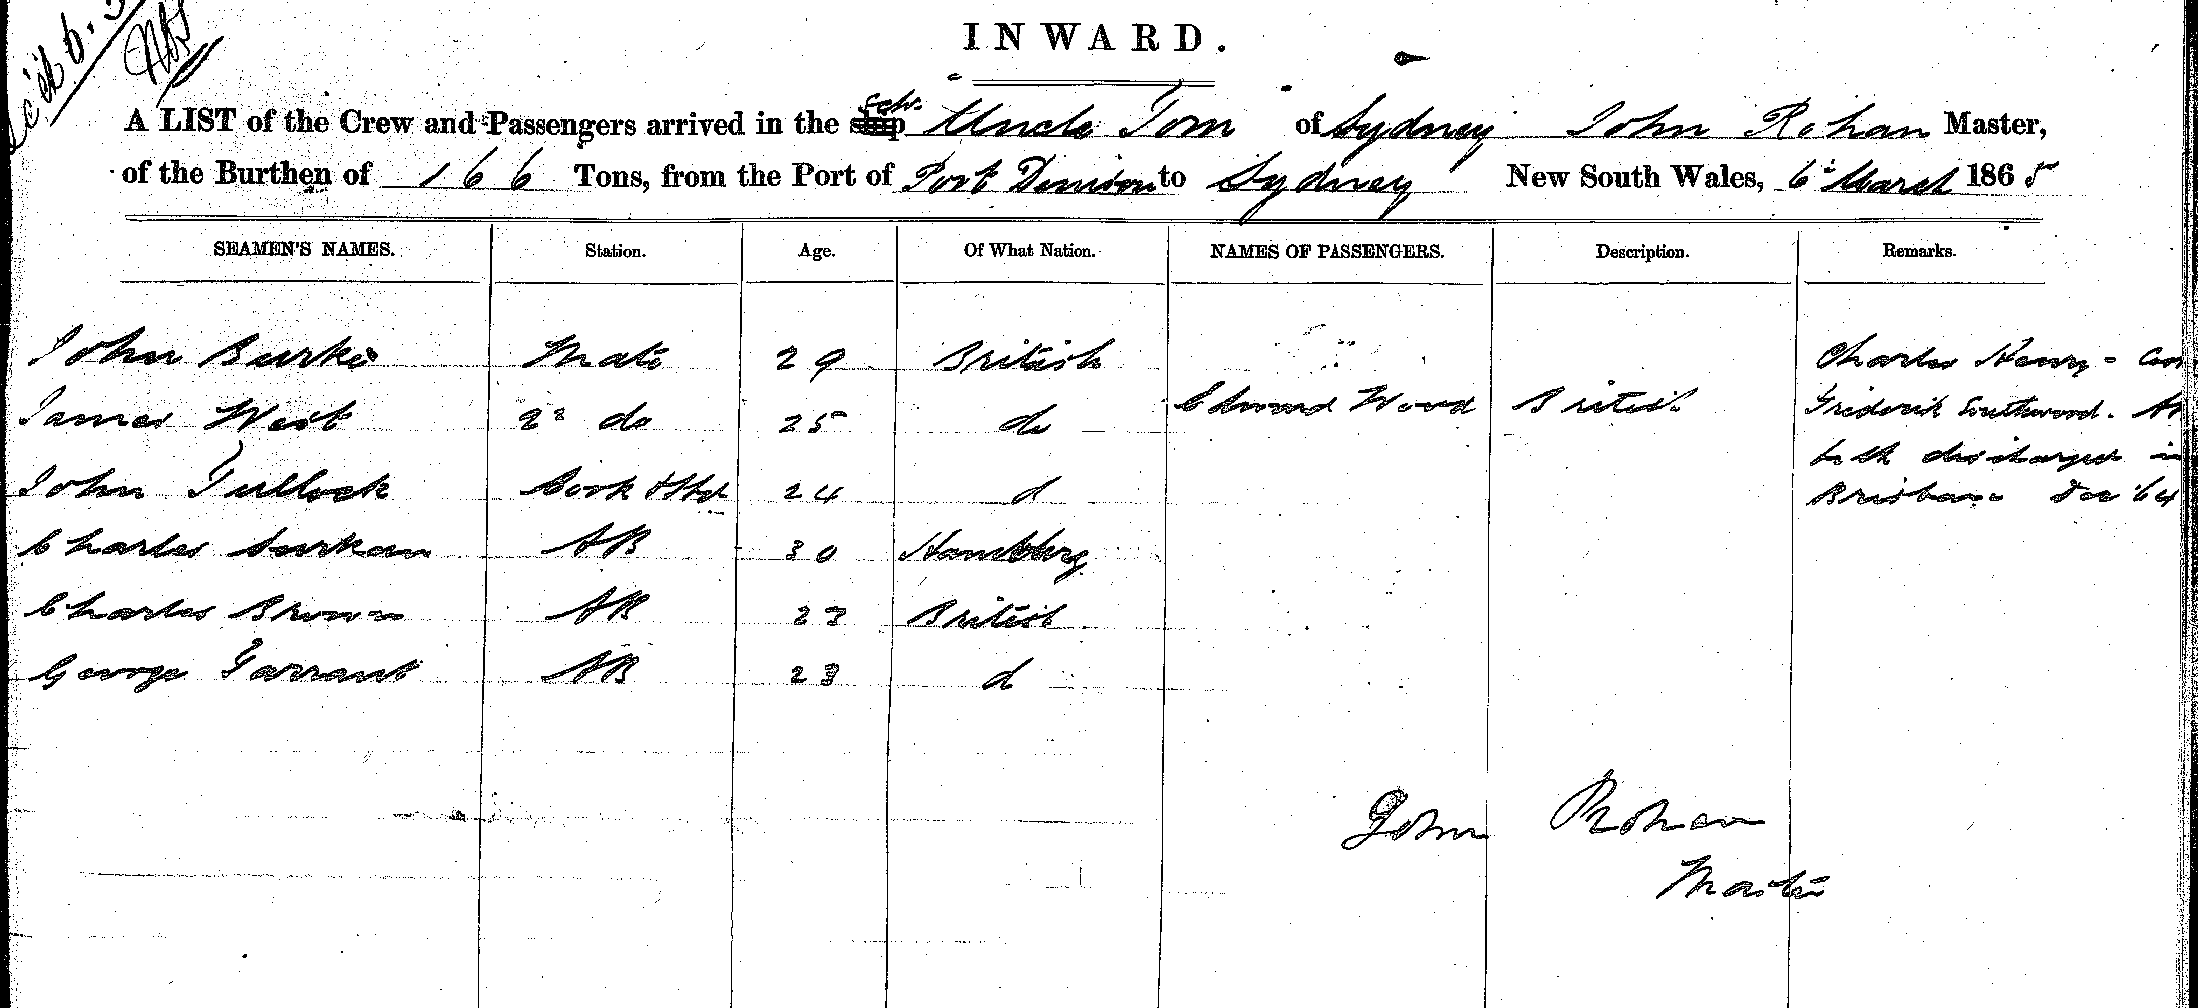 INWARD.
A LIST of the Crew and Passengers arrived in the ship Sch. Uncle Tom of Sydney John Rohan Master,
of the Burthen of 166 Tons, from the Port of Port Denison to Sydney New South Wales, 6 March 1865
SEAMEN'S NAMES. Station. Age. Of What Nation. NAMES OF PASSENGERS. Description. Remarks.
John Burke Mate 29 British Charles Henry -
James West 2d do 25 do Edward Wood British Frederick Southwood.
both discharged in
John Tullock Cook & Std 24 d Brisbane Dec '64
Charles AB 30 Hamburg
Charles Brown AB 23 British
George Tarrant AB 23 d
John Rohan
Master